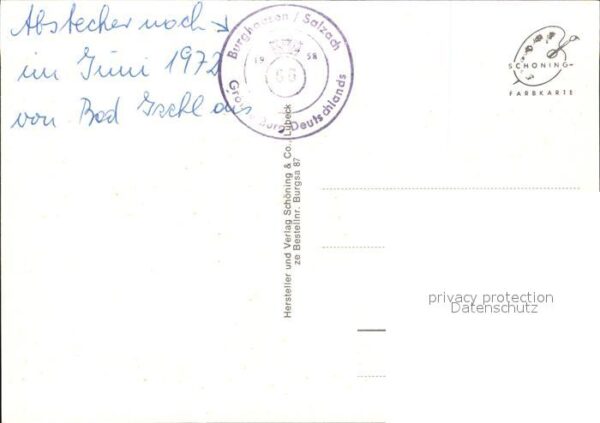 Abstecher nach
im Juni 1972
von Bad Ischl aus
Burghausen / Salzach
19 58
Deutschlands
SCHÖNING
FARBKARTE
Hersteller und Verlag Schöning & Co., Lübeck
ze Bestellnr. Burgsa 87
privacy protection
Datenschutz